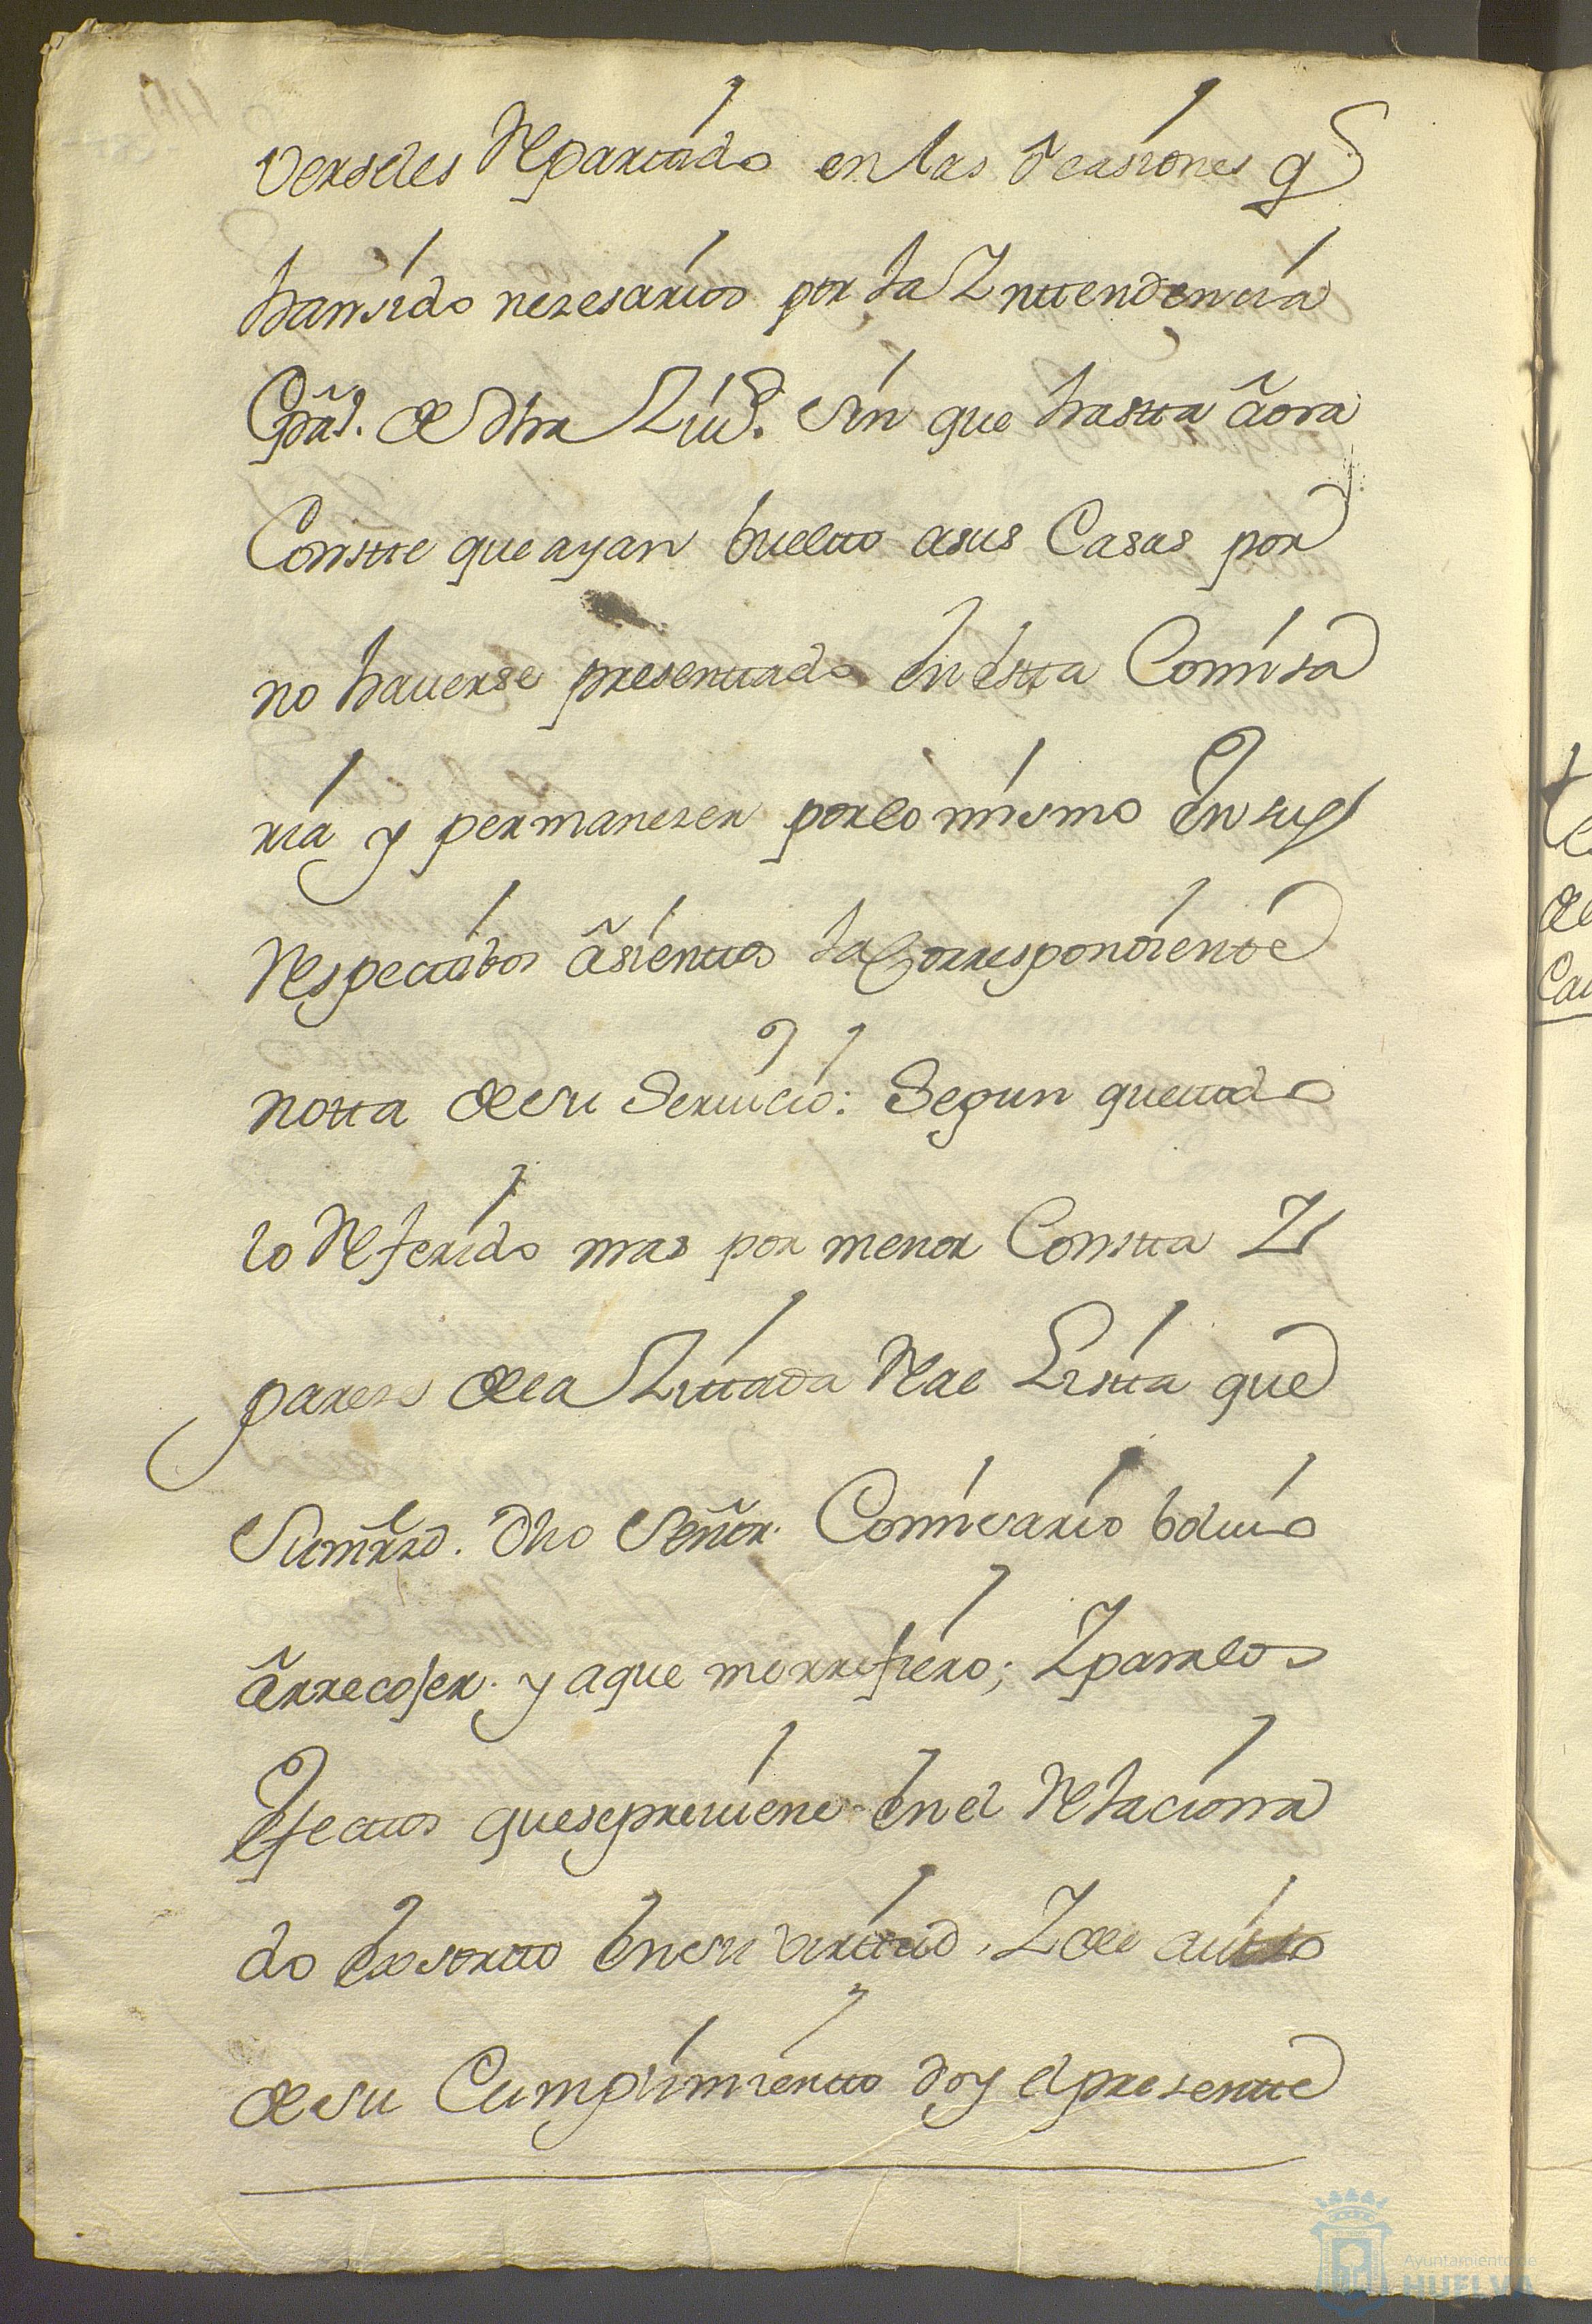 verseles Repartido en las ocasiones q͠
han sido nezesarios por la Yntendencia
Gra͠l. de dha Ziud. sin que hasta ãora
Constte que ayan buelto asus Casas por
no hauerse presenttado En estta Comisa
ria y permanezer porlo mismo En sus
Respectibos ãsienttos la Correspondiente
notta desu Seruicio: Segun que ttodo
lo Referido mas por menor Constta Y
parese dela Zittada Real Listta que
Su mrzd. dho Señor. Comisario boluio
ãrrecojer. y a que me rrefiero; Y para los
Efecttos que se preuiene En el Relaciona
do Exsortto En su virttud, Y de
desu Cumplimientto doy el presentte
Ayuntamiento de
HUELVA